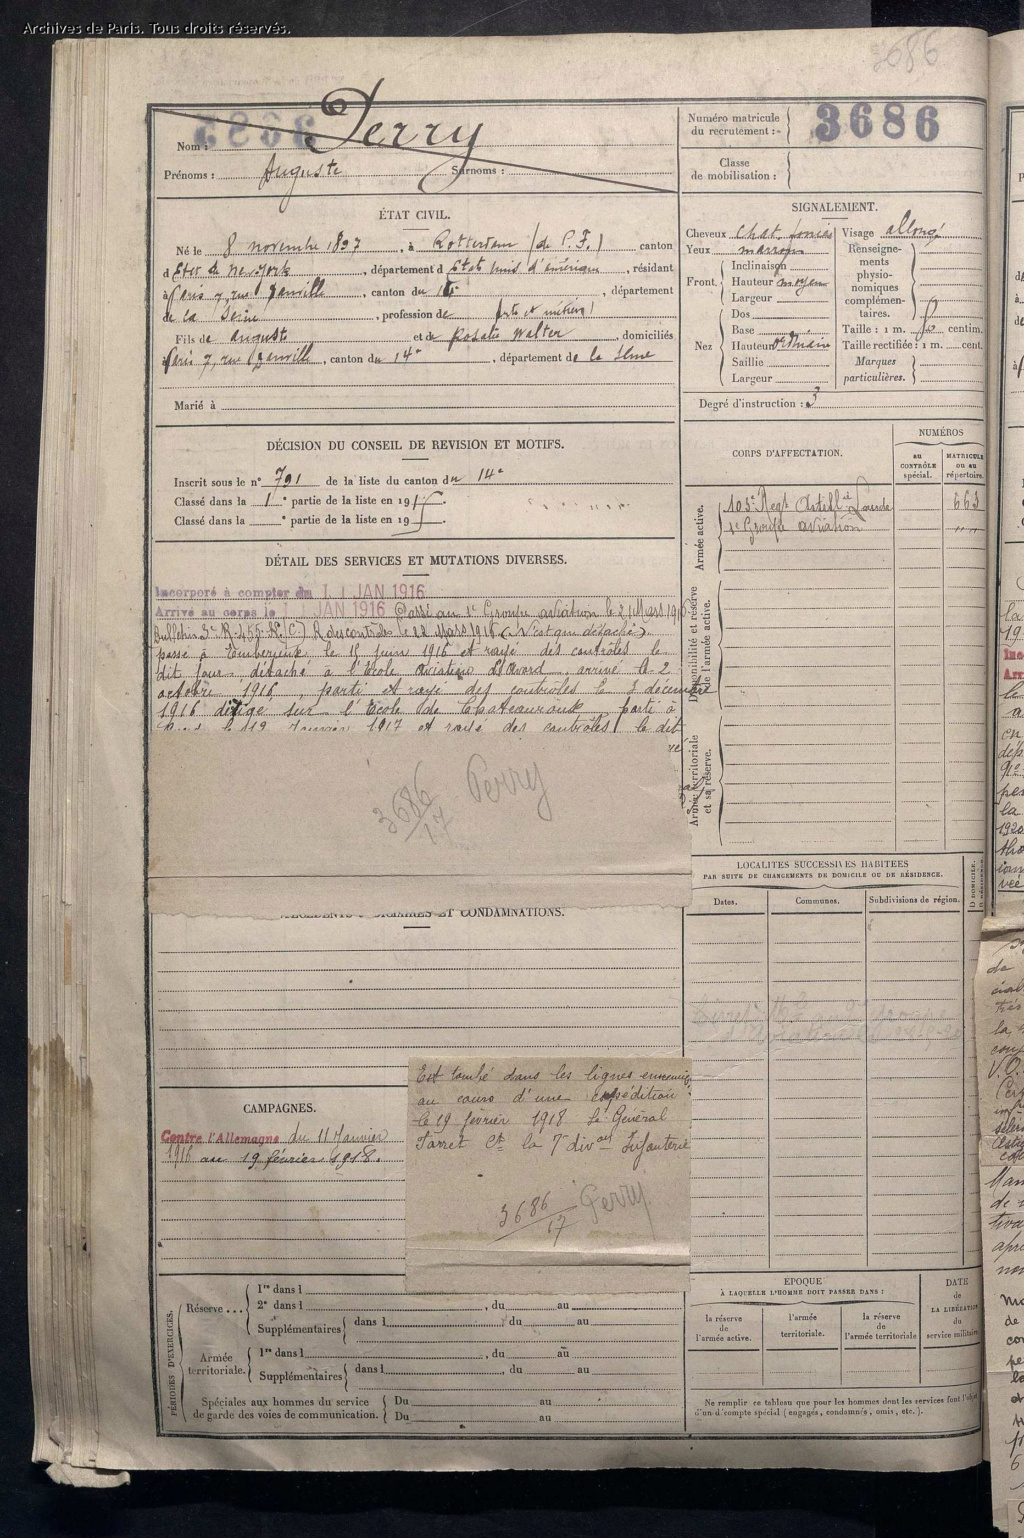 Archives de Paris. Tous droits réservés.
3686
Nom : Perry
Prénoms : Auguste Surnoms :
Numéro matricule
du recrutement : 3686
Classe
de mobilisation :
ÉTAT CIVIL.
Né le 8 novembre 1897, à Rotterdam (de P. F.) canton
d État de New-York, département d États unis d'amérique, résidant
à Paris 7, rue, canton du 14e, département
de la Seine, profession de arts et métiers
Fils de Auguste et de Rosalie Walter, domiciliés
à Paris 7, rue, canton du 14e, département de la Seine
Marié à
SIGNALEMENT.
Cheveux chat. foncés Visage allongé
Yeux marron
Front. Inclinaison
Hauteur moyen
Largeur
Nez Dos
Base
Hauteur
Saillie
Largeur
Renseigne-
ments
physio-
nomiques
complémen-
taires.
Taille : 1 m. centim.
Taille rectifiée : 1 m. cent.
Marques
particulières.
Degré d'instruction : 3
DÉCISION DU CONSEIL DE REVISION ET MOTIFS.
Inscrit sous le n° 791 de la liste du canton du 14e
Classé dans la 1e partie de la liste en 191
Classé dans la e partie de la liste en 19
CORPS D'AFFECTATION.
NUMÉROS
au
CONTRÔLE
spécial.
MATRICULE
ou au
répertoire.
Armée active.
103e Regt Artillie Lourde 663
1e Groupe aviation
Disponibilité et réserve
de l'armée active.
Armée territoriale
et sa réserve.
DÉTAIL DES SERVICES ET MUTATIONS DIVERSES.
Incorporé à compter du 11 JAN 1916
Arrivé au corps le 11 JAN 1916 Passé au 1e Groupe aviation le 21 Mars 1916
Bulletin 3e R. 455 R des contrôles le 22 Mars 1916 (N'est que détaché).
passé à le 18 juin 1916 et rayé des contrôles le
dit jour détaché à l'École aviation d'Avord arrivé le 2
octobre 1916, parti et rayé des contrôles le 8 décembre
1916 dirigé sur l'École de Chateauroux parti à
le 19 Janvier 1917 et rayé des contrôles le dit
3686/17 Perry
ET CONDAMNATIONS.
LOCALITÉS SUCCESSIVES HABITÉES
PAR SUITE DE CHANGEMENTS DE DOMICILE OU DE RÉSIDENCE.
Dates. Communes. Subdivisions de région.
D DOMICILE.
R RÉSIDENCE.
CAMPAGNES.
Contre l'Allemagne du 11 Janvier
1916 au 19 février 1918.
Est tombé dans les lignes ennemies
au cours d'une expédition
le 19 février 1918 Le Général
Farret Ct la 7e divon Infanterie
3686/17 Perry
PÉRIODES D'EXERCICES.
Réserve ... 1re dans l
2e dans l, du au
Supplémentaires dans l, du au
Armée
territoriale. 1re dans l, du au
Supplémentaires dans l, du au
Spéciales aux hommes du service
de garde des voies de communication.
Du au
Du au
ÉPOQUE
À LAQUELLE L'HOMME DOIT PASSER DANS :
la réserve
de
l'armée active.
l'armée
territoriale.
la réserve
de
l'armée territoriale
DATE
de
LA LIBÉRATION
du
service militaire.
Ne remplir ce tableau que pour les hommes dont les services font l'objet
d'un décompte spécial (engagés, condamnés, omis, etc.).